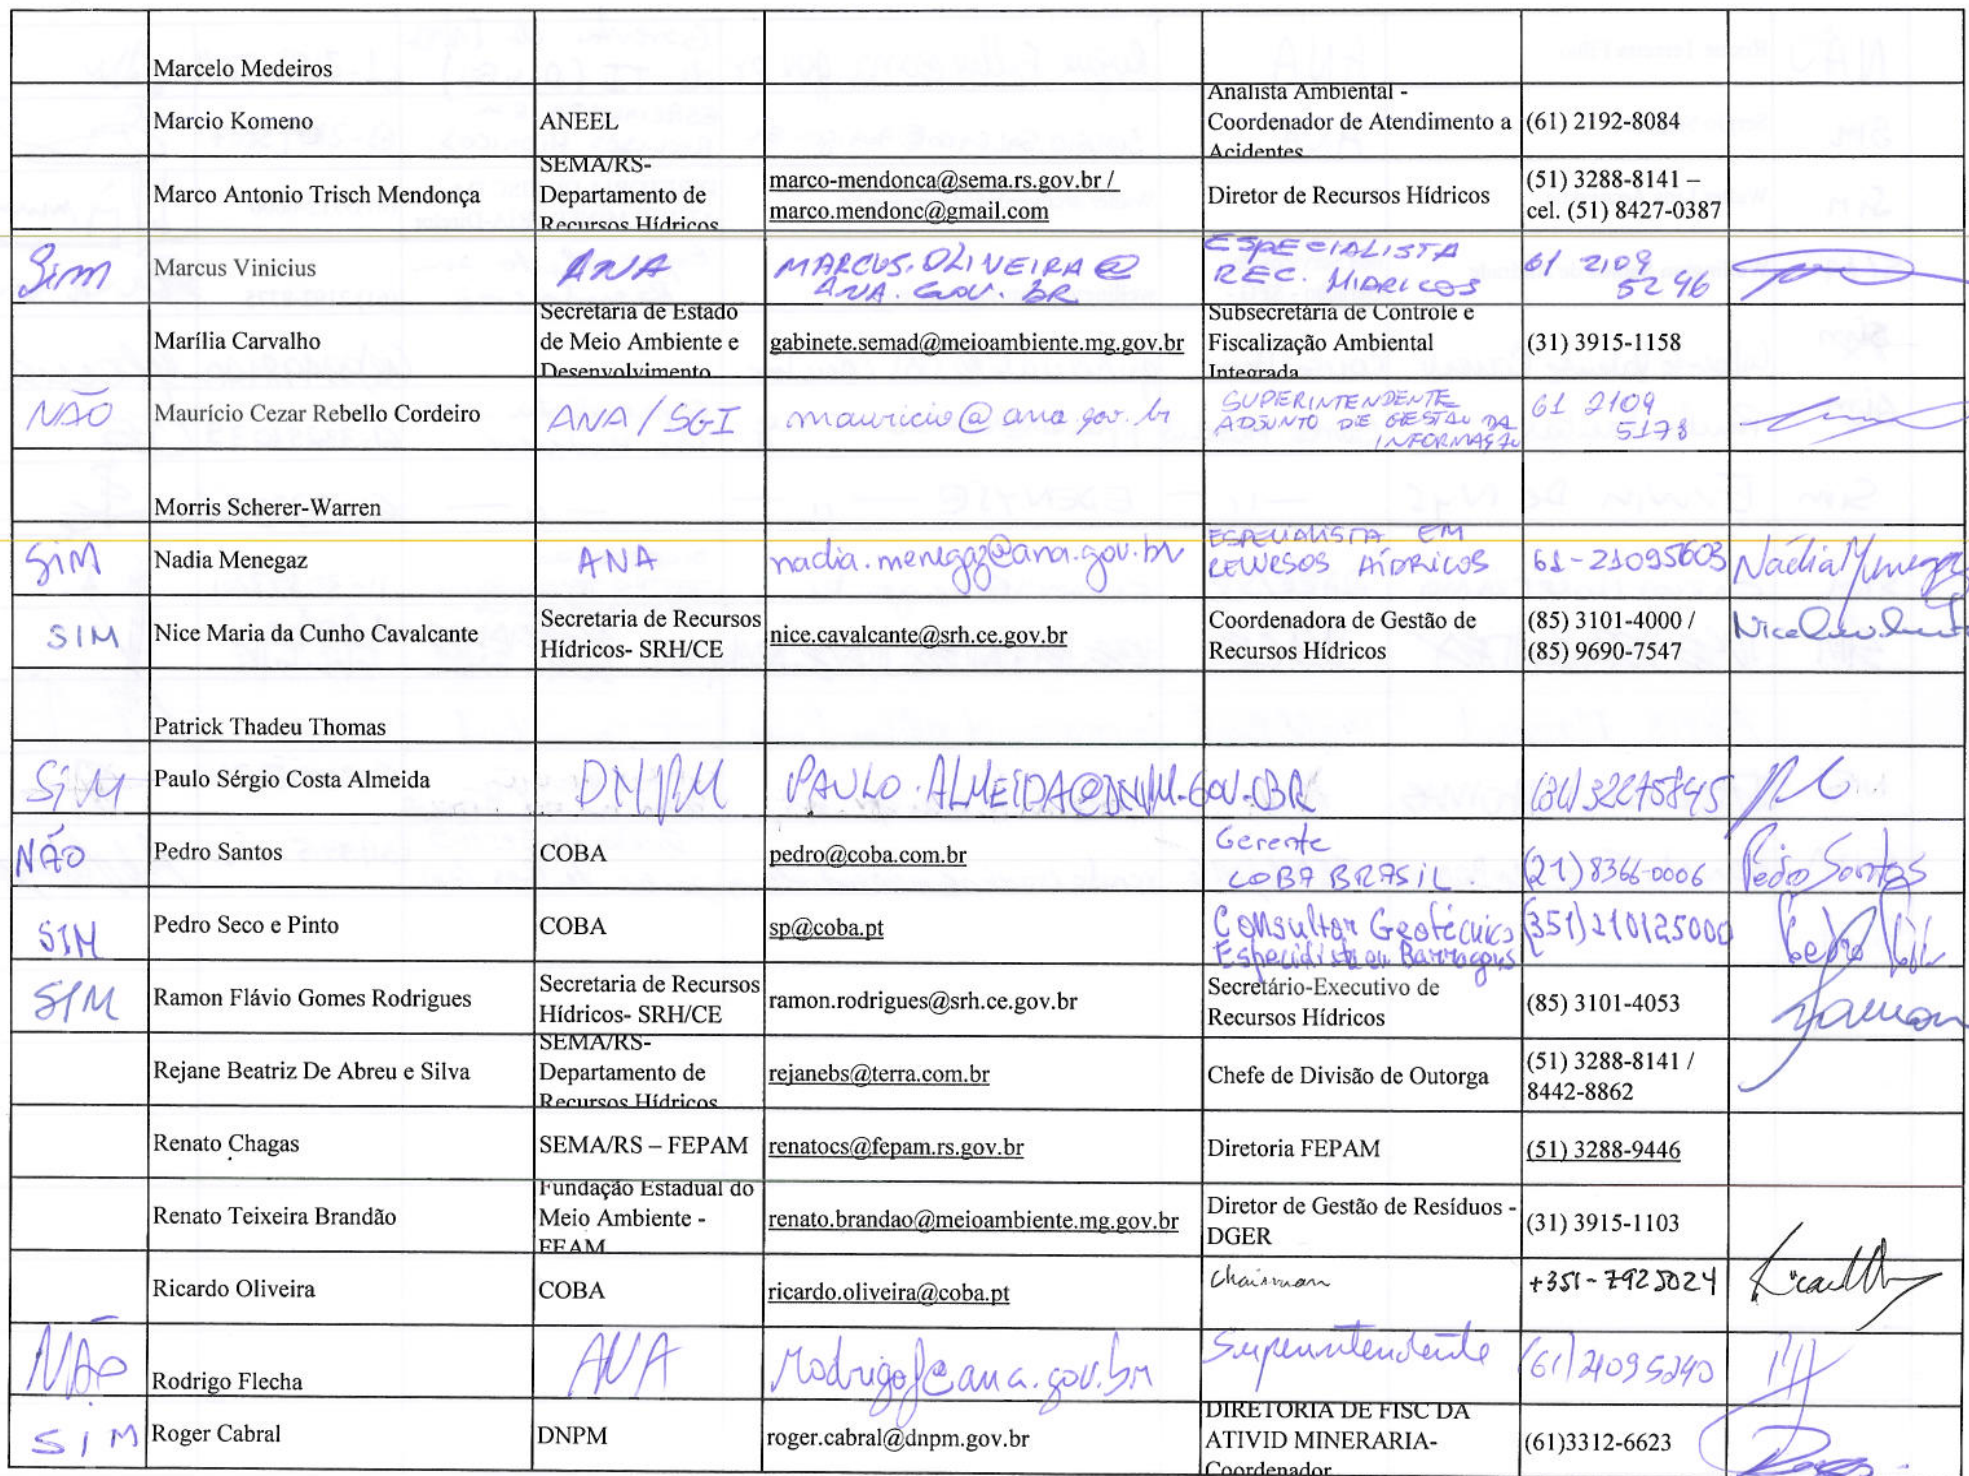 Marcelo Medeiros
Marcio Komeno
ANEEL
Analista Ambiental -
Coordenador de Atendimento a
Acidentes
(61) 2192-8084
Marco Antonio Trisch Mendonça
SEMA/RS-
Departamento de
Recursos Hídricos
marco-mendonca@sema.rs.gov.br /
marco.mendonc@gmail.com
Diretor de Recursos Hídricos
(51) 3288-8141 –
cel. (51) 8427-0387
Sim
Marcus Vinicius
ANA
MARCUS.OLIVEIRA@
ANA.GOV.BR
ESPECIALISTA
REC. HIDRICOS
61 2109
5246
Marília Carvalho
Secretaria de Estado
de Meio Ambiente e
Desenvolvimento
gabinete.semad@meioambiente.mg.gov.br
Subsecretária de Controle e
Fiscalização Ambiental
Integrada
(31) 3915-1158
NÃO
Maurício Cezar Rebello Cordeiro
ANA/SGI
mauricio@ana.gov.br
SUPERINTENDENTE
ADJUNTO DE GESTÃO DA
INFORMAÇÃO
61 2109
5178
Morris Scherer-Warren
SIM
Nadia Menegaz
ANA
nadia.menegaz@ana.gov.br
ESPECIALISTA EM
RECURSOS HÍDRICOS
61-21095603
Nádia Menegaz
SIM
Nice Maria da Cunho Cavalcante
Secretaria de Recursos
Hídricos- SRH/CE
nice.cavalcante@srh.ce.gov.br
Coordenadora de Gestão de
Recursos Hídricos
(85) 3101-4000 /
(85) 9690-7547
Patrick Thadeu Thomas
SIM
Paulo Sérgio Costa Almeida
DNPM
PAULO.ALMEIDA@DNPM.GOV.BR
NÃO
Pedro Santos
COBA
pedro@coba.com.br
Gerente
COBA BRASIL.
(21) 8366-0006
Pedro Santos
SIM
Pedro Seco e Pinto
COBA
sp@coba.pt
Consultor Geotécnico
Especialista em Barragens
(351) 210125000
SIM
Ramon Flávio Gomes Rodrigues
Secretaria de Recursos
Hídricos- SRH/CE
ramon.rodrigues@srh.ce.gov.br
Secretário-Executivo de
Recursos Hídricos
(85) 3101-4053
Ramon
Rejane Beatriz De Abreu e Silva
SEMA/RS-
Departamento de
Recursos Hídricos
rejanebs@terra.com.br
Chefe de Divisão de Outorga
(51) 3288-8141 /
8442-8862
Renato Chagas
SEMA/RS – FEPAM
renatocs@fepam.rs.gov.br
Diretoria FEPAM
(51) 3288-9446
Renato Teixeira Brandão
Fundação Estadual do
Meio Ambiente -
FEAM
renato.brandao@meioambiente.mg.gov.br
Diretor de Gestão de Resíduos -
DGER
(31) 3915-1103
Ricardo Oliveira
COBA
ricardo.oliveira@coba.pt
Chairman
+351-7925024
NÃO
Rodrigo Flecha
ANA
rodrigof@ana.gov.br
Superintendente
(61) 21095240
SIM
Roger Cabral
DNPM
roger.cabral@dnpm.gov.br
DIRETORIA DE FISC DA
ATIVID MINERARIA-
Coordenador
(61)3312-6623